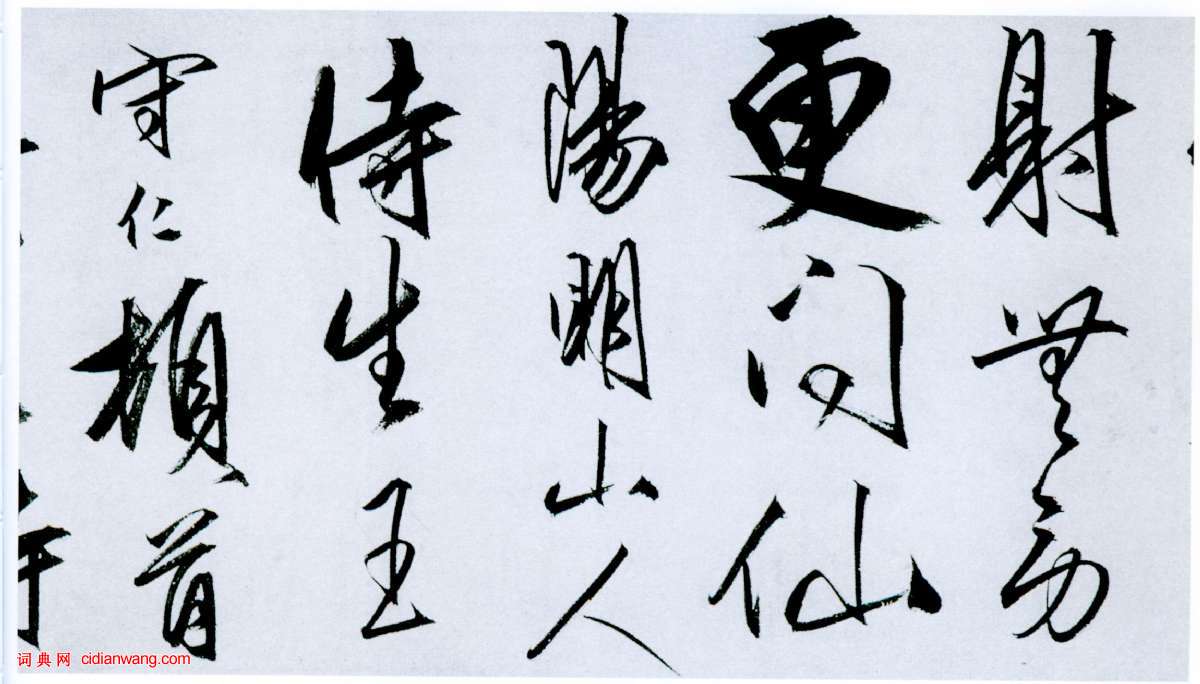 射無勞
更問仙
陽明山人
侍生王
守仁頓首
词典网 cidianwang.com